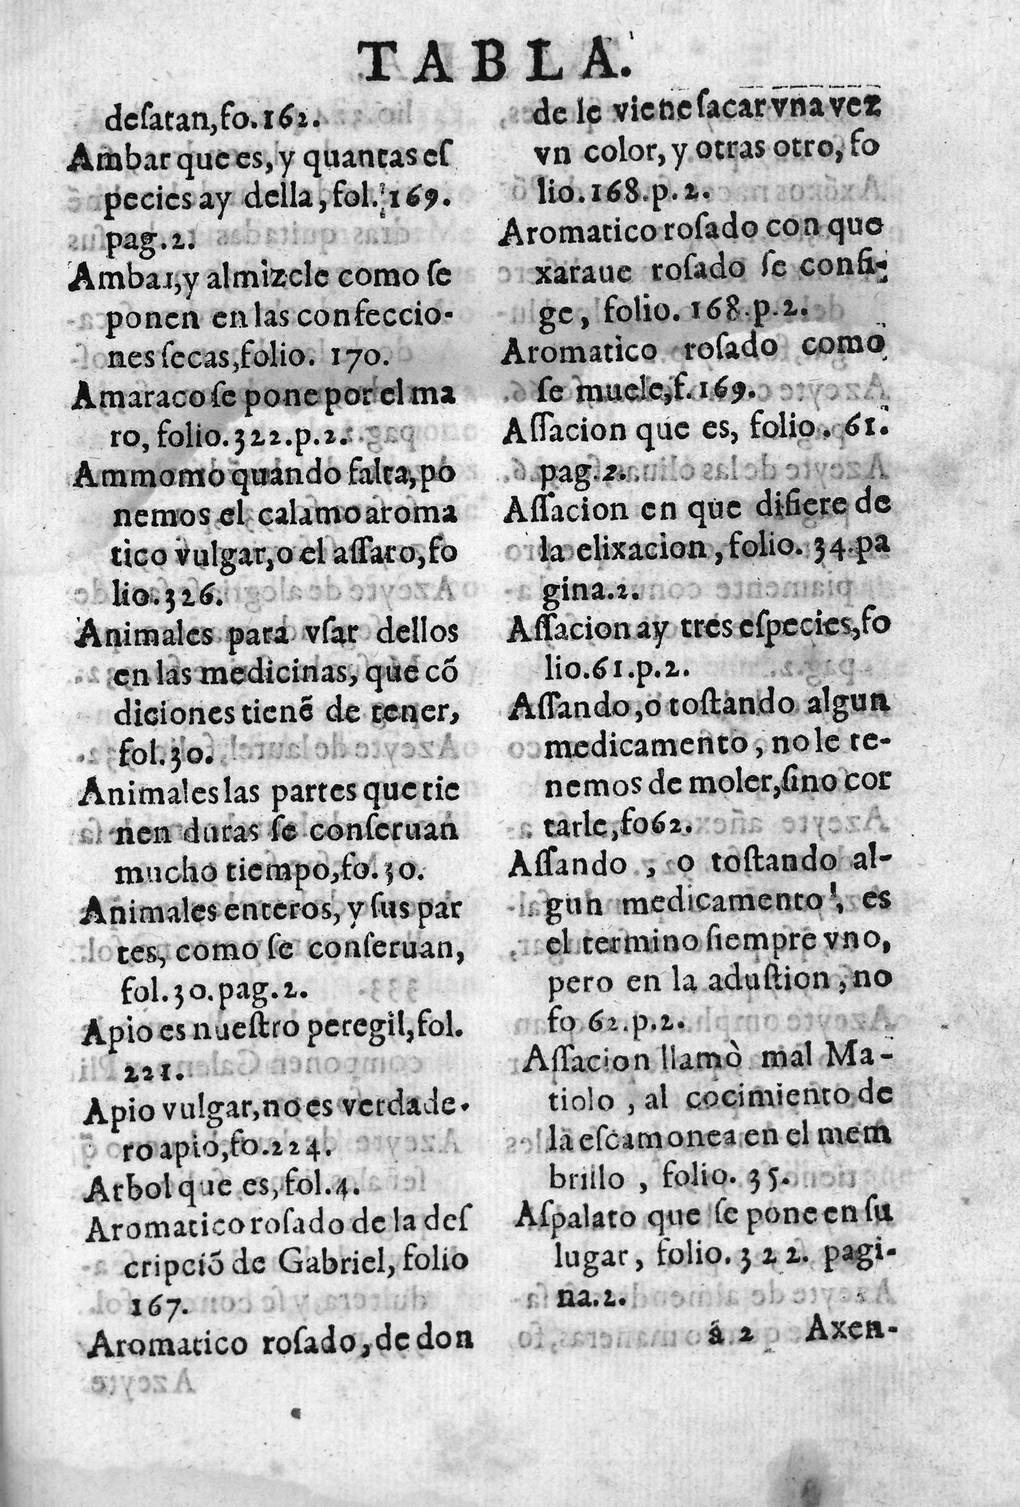 TABLA.
deſatan,fo.162.
Ambar que es, y quantas eſ
pecies ay della, fol. 169.
pag.2.
Ambar, y almizcle como ſe
ponen en las confeccio-
nes ſecas,folio. 170.
Amaraco ſe pone por el ma
ro, folio.322.p.2.
Ammomo quando falta, po
nemos el calamo aroma
tico vulgar, o el aſſaro, fo
lio.326.
Animales para vſar dellos
en las medicinas, que cõ
diciones tienẽ de tener,
fol.30.
Animales las partes que tie
nen duras ſe conſeruan
mucho tiempo, fo.30.
Animales enteros, y ſus par
tes, como ſe conſeruan,
fol.30.pag.2.
Apio es nueſtro peregil, fol.
221.
Apio vulgar, no es verdade-
ro apio, fo.224.
Arbol que es, fol.4.
Aromatico roſado de la deſ
cripciõ de Gabriel, folio
167.
Aromatico roſado, de don
de le viene ſacar vna vez
vn color, y otras otro, fo
lio.168.p.2.
Aromatico roſado con que
xaraue roſado ſe confi-
ge, folio. 168.p.2.
Aromatico roſado como
ſe muele, f.169.
Aſſacion que es, folio. 61.
pag.2.
Aſſacion en que difiere de
la elixacion, folio. 34.pa
gina.2.
Aſſacion ay tres eſpecies, fo
lio.61.p.2.
Aſſando, o toſtando algun
medicamento, no le te-
nemos de moler, ſino cor
tarle, fo62.
Aſſando , o toſtando al-
gun medicamento, es
el termino ſiempre vno,
pero en la aduſtion, no
fo 62.p.2.
Aſſacion llamò mal Ma-
tiolo , al cocimiento de
la eſcamonea en el mem
brillo , folio. 35.
Aſpalato que ſe pone en ſu
lugar, folio.322. pagi-
na.2.
á 2 Axen-